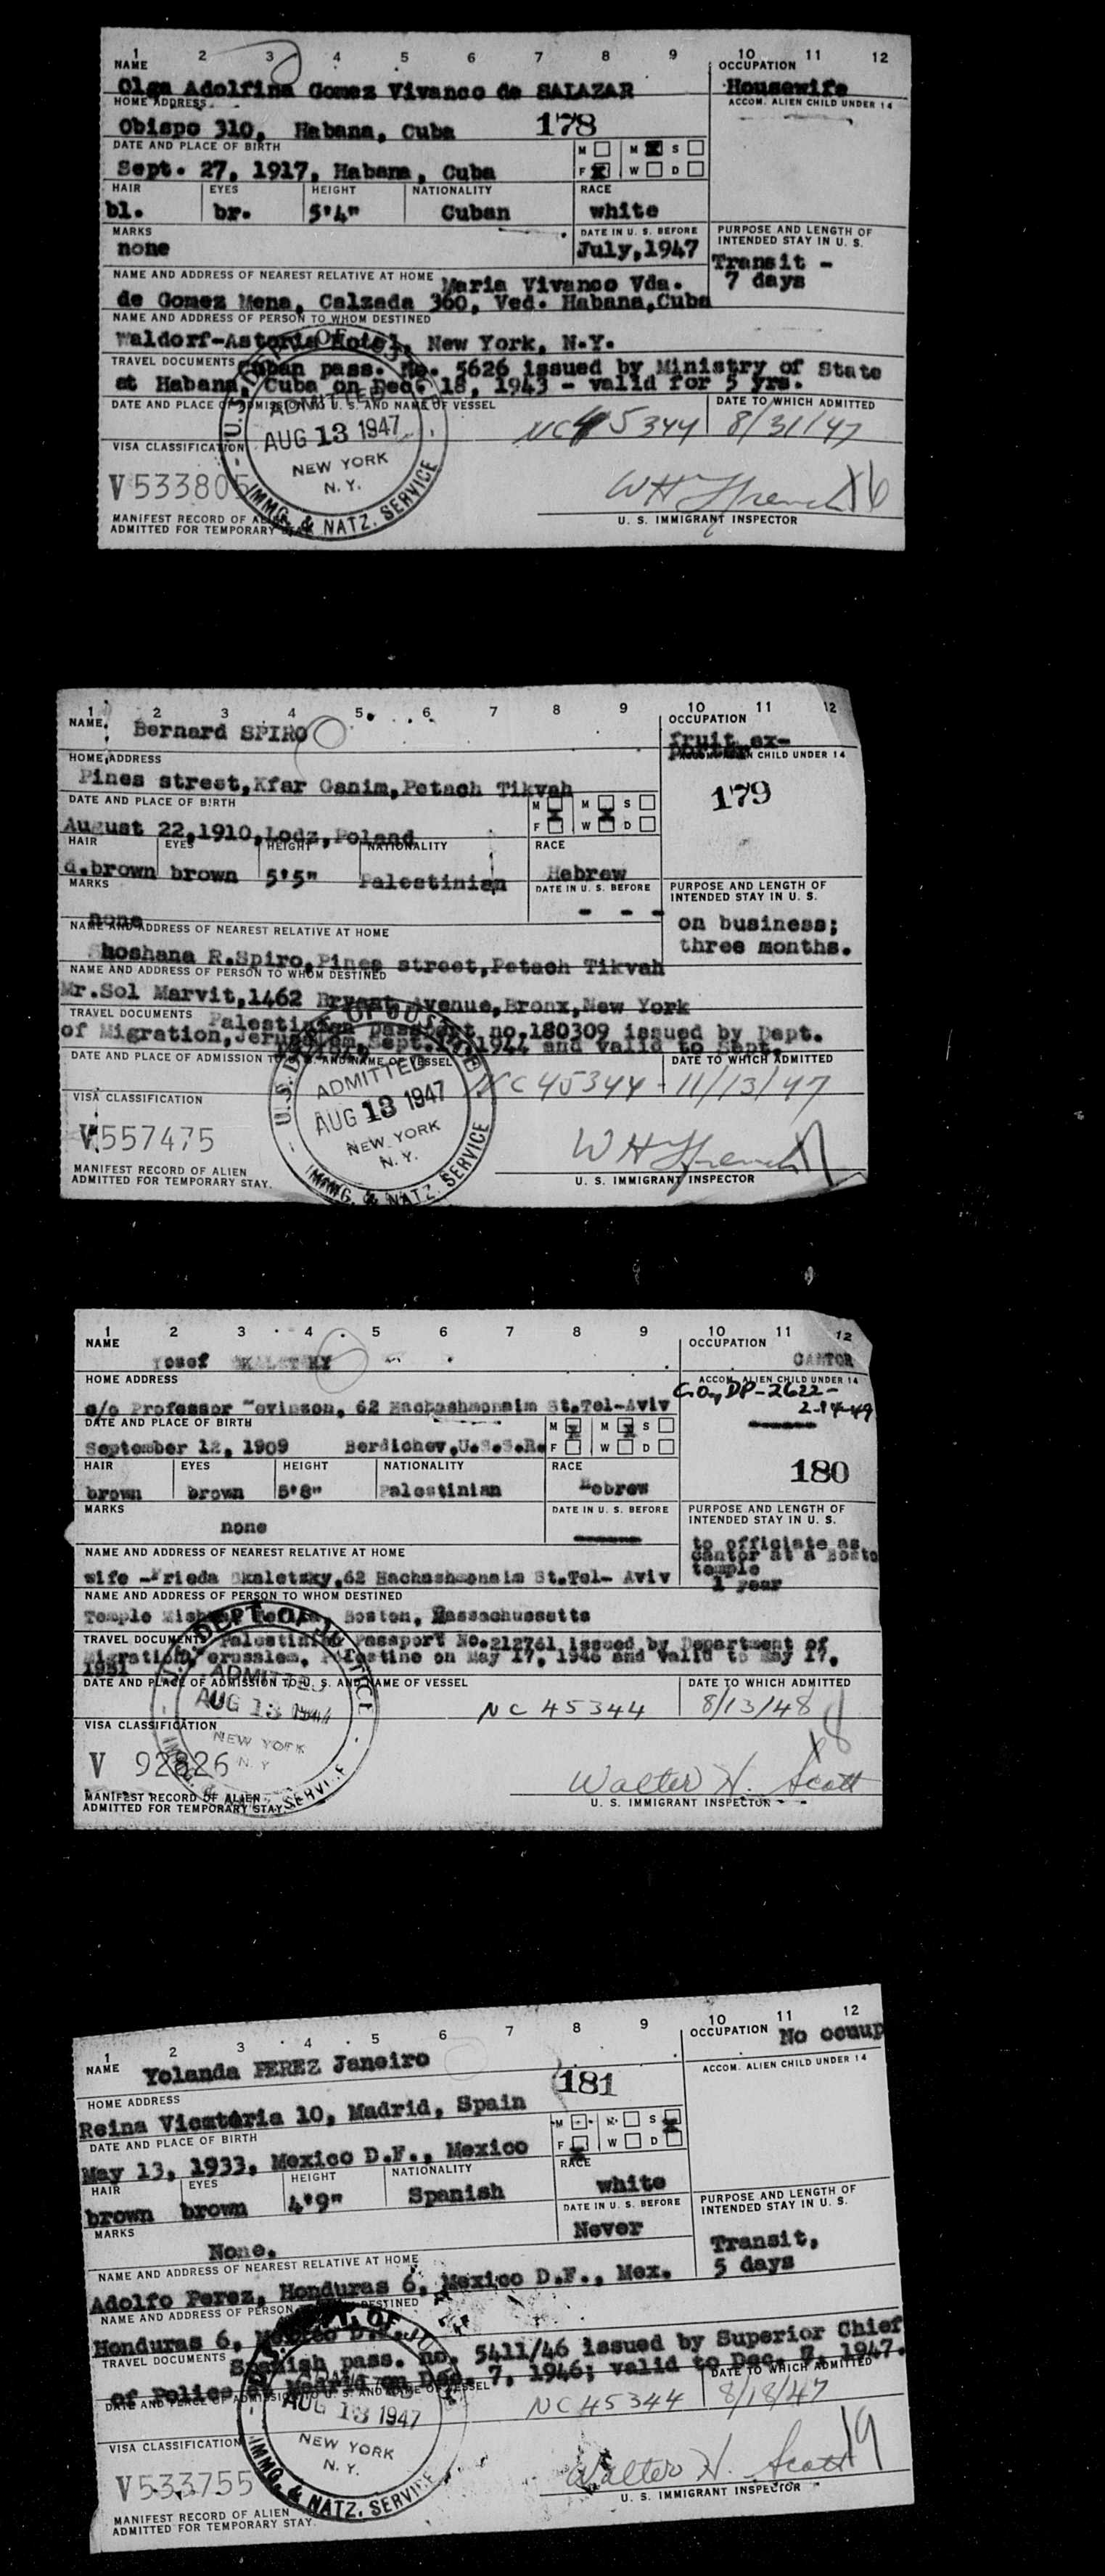 1 2 3 4 5 6 7 8 9 10 11 12
NAME OCCUPATION
Olga Adolfina Gomez Vivanco de SALAZAR Housewife
HOME ADDRESS ACCOM. ALIEN CHILD UNDER 14
Obispo 310, Habana, Cuba 178
DATE AND PLACE OF BIRTH M M S
Sept. 27, 1917, Habana, Cuba F W D
HAIR EYES HEIGHT NATIONALITY RACE
bl. br. 5'4" Cuban white
MARKS DATE IN U. S. BEFORE PURPOSE AND LENGTH OF INTENDED STAY IN U. S.
none July,1947 Transit - 7 days
NAME AND ADDRESS OF NEAREST RELATIVE AT HOME Maria Vivanco Vda.
de Gomez Mena, Calzada 360, Ved. Habana,Cuba
NAME AND ADDRESS OF PERSON TO WHOM DESTINED
Waldorf-Astoria Hotel, New York, N.Y.
TRAVEL DOCUMENTS Cuban pass. No. 5626 issued by Ministry of State
at Habana, Cuba on Dec. 18, 1943 - valid for 5 yrs.
DATE AND PLACE OF ADMISSION TO U. S. AND NAME OF VESSEL DATE TO WHICH ADMITTED
NC 45344 8/31/47
ADMITTED
AUG 13 1947
NEW YORK
N. Y.
IMMG. & NATZ. SERVICE
VISA CLASSIFICATION
V 533805
16
U. S. IMMIGRANT INSPECTOR
MANIFEST RECORD OF ALIEN
ADMITTED FOR TEMPORARY STAY
1 2 3 4 5 6 7 8 9 10 11 12
NAME OCCUPATION
Bernard SPIRO fruit ex-
HOME ADDRESS CHILD UNDER 14
Pines street,Kfar Ganim,Petach Tikvah 179
DATE AND PLACE OF BIRTH M M S
August 22,1910,Lodz,Poland F W D
HAIR EYES HEIGHT NATIONALITY RACE
d.brown brown 5'5" Palestinian Hebrew
MARKS DATE IN U. S. BEFORE PURPOSE AND LENGTH OF INTENDED STAY IN U. S.
none - - - on business; three months.
NAME AND ADDRESS OF NEAREST RELATIVE AT HOME
Shoshana R.Spiro,Pines street,Petach Tikvah
NAME AND ADDRESS OF PERSON TO WHOM DESTINED
Mr.Sol Marvit,1462 Bryant Avenue,Bronx,New York
TRAVEL DOCUMENTS Palestinian passport no.180309 issued by Dept.
of Migration,Jerusalem, Sept. 1944 and valid to Sept.
DATE AND PLACE OF ADMISSION TO U. S. AND NAME OF VESSEL DATE TO WHICH ADMITTED
NC 45344 - 11/13/47
ADMITTED
AUG 13 1947
NEW YORK
N. Y.
IMMG. & NATZ. SERVICE
VISA CLASSIFICATION
V 557475
U. S. IMMIGRANT INSPECTOR
MANIFEST RECORD OF ALIEN
ADMITTED FOR TEMPORARY STAY.
1 2 3 4 5 6 7 8 9 10 11 12
NAME OCCUPATION
Yosef SKALETZKY CANTOR
HOME ADDRESS ACCOM. ALIEN CHILD UNDER 14
c/o Professor Levinson, 62 Hachashmonaim St.Tel-Aviv DP-2622- 2-14-49
DATE AND PLACE OF BIRTH M M S
September 12, 1909 Berdichev,U.S.S.R. F W D
HAIR EYES HEIGHT NATIONALITY RACE 180
brown brown 5'8" Palestinian Hebrew
MARKS DATE IN U. S. BEFORE PURPOSE AND LENGTH OF INTENDED STAY IN U. S.
none to officiate as cantor at a Bosto temple 1 year
NAME AND ADDRESS OF NEAREST RELATIVE AT HOME
wife - Frieda Skaletzky,62 Hachashmonaim St.Tel- Aviv
NAME AND ADDRESS OF PERSON TO WHOM DESTINED
Temple Boston, Massachussetts
TRAVEL DOCUMENTS Palestinian Passport No.212761 issued by Department of
Migration, Jerusalem, Palestine on May 17, 1946 and valid to May 17,
1951
DATE AND PLACE OF ADMISSION TO U. S. AND NAME OF VESSEL DATE TO WHICH ADMITTED
NC 45344 8/13/48
ADMITTED
AUG 13
NEW YORK
N. Y.
VISA CLASSIFICATION
V 92826
Walter H. Scott 18
U. S. IMMIGRANT INSPECTOR
MANIFEST RECORD OF ALIEN
ADMITTED FOR TEMPORARY STAY
1 2 3 4 5 6 7 8 9 10 11 12
NAME OCCUPATION No ocuup
Yolanda PEREZ Janeiro
HOME ADDRESS 181 ACCOM. ALIEN CHILD UNDER 14
Reina Victoria 10, Madrid, Spain
DATE AND PLACE OF BIRTH M M S
May 13, 1933, Mexico D.F., Mexico F W D
HAIR EYES HEIGHT NATIONALITY RACE
brown brown 4'9" Spanish white
MARKS DATE IN U. S. BEFORE PURPOSE AND LENGTH OF INTENDED STAY IN U. S.
None. Never Transit, 5 days
NAME AND ADDRESS OF NEAREST RELATIVE AT HOME
Adolfo Perez, Honduras 6, Mexico D.F., Mex.
NAME AND ADDRESS OF PERSON DESTINED
Honduras 6, Mexico D.F.
TRAVEL DOCUMENTS Spanish pass. no. 5411/46 issued by Superior Chief
of Police at Madrid on Dec. 7, 1946; valid to Dec. 7, 1947.
DATE AND PLACE OF ADMISSION TO U. S. AND NAME OF VESSEL DATE TO WHICH ADMITTED
NC 45344 8/18/47
AUG 13 1947
NEW YORK
N. Y.
IMMG. & NATZ. SERVICE
VISA CLASSIFICATION
V 533755
Walter H. Scott 19
U. S. IMMIGRANT INSPECTOR
MANIFEST RECORD OF ALIEN
ADMITTED FOR TEMPORARY STAY.